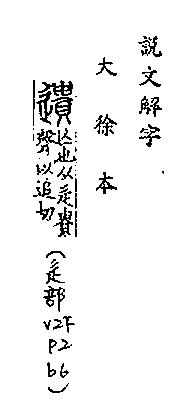 說文解字
大徐本
遺
亾也从辵貴
聲以追切
(辵部V2下P2b6)